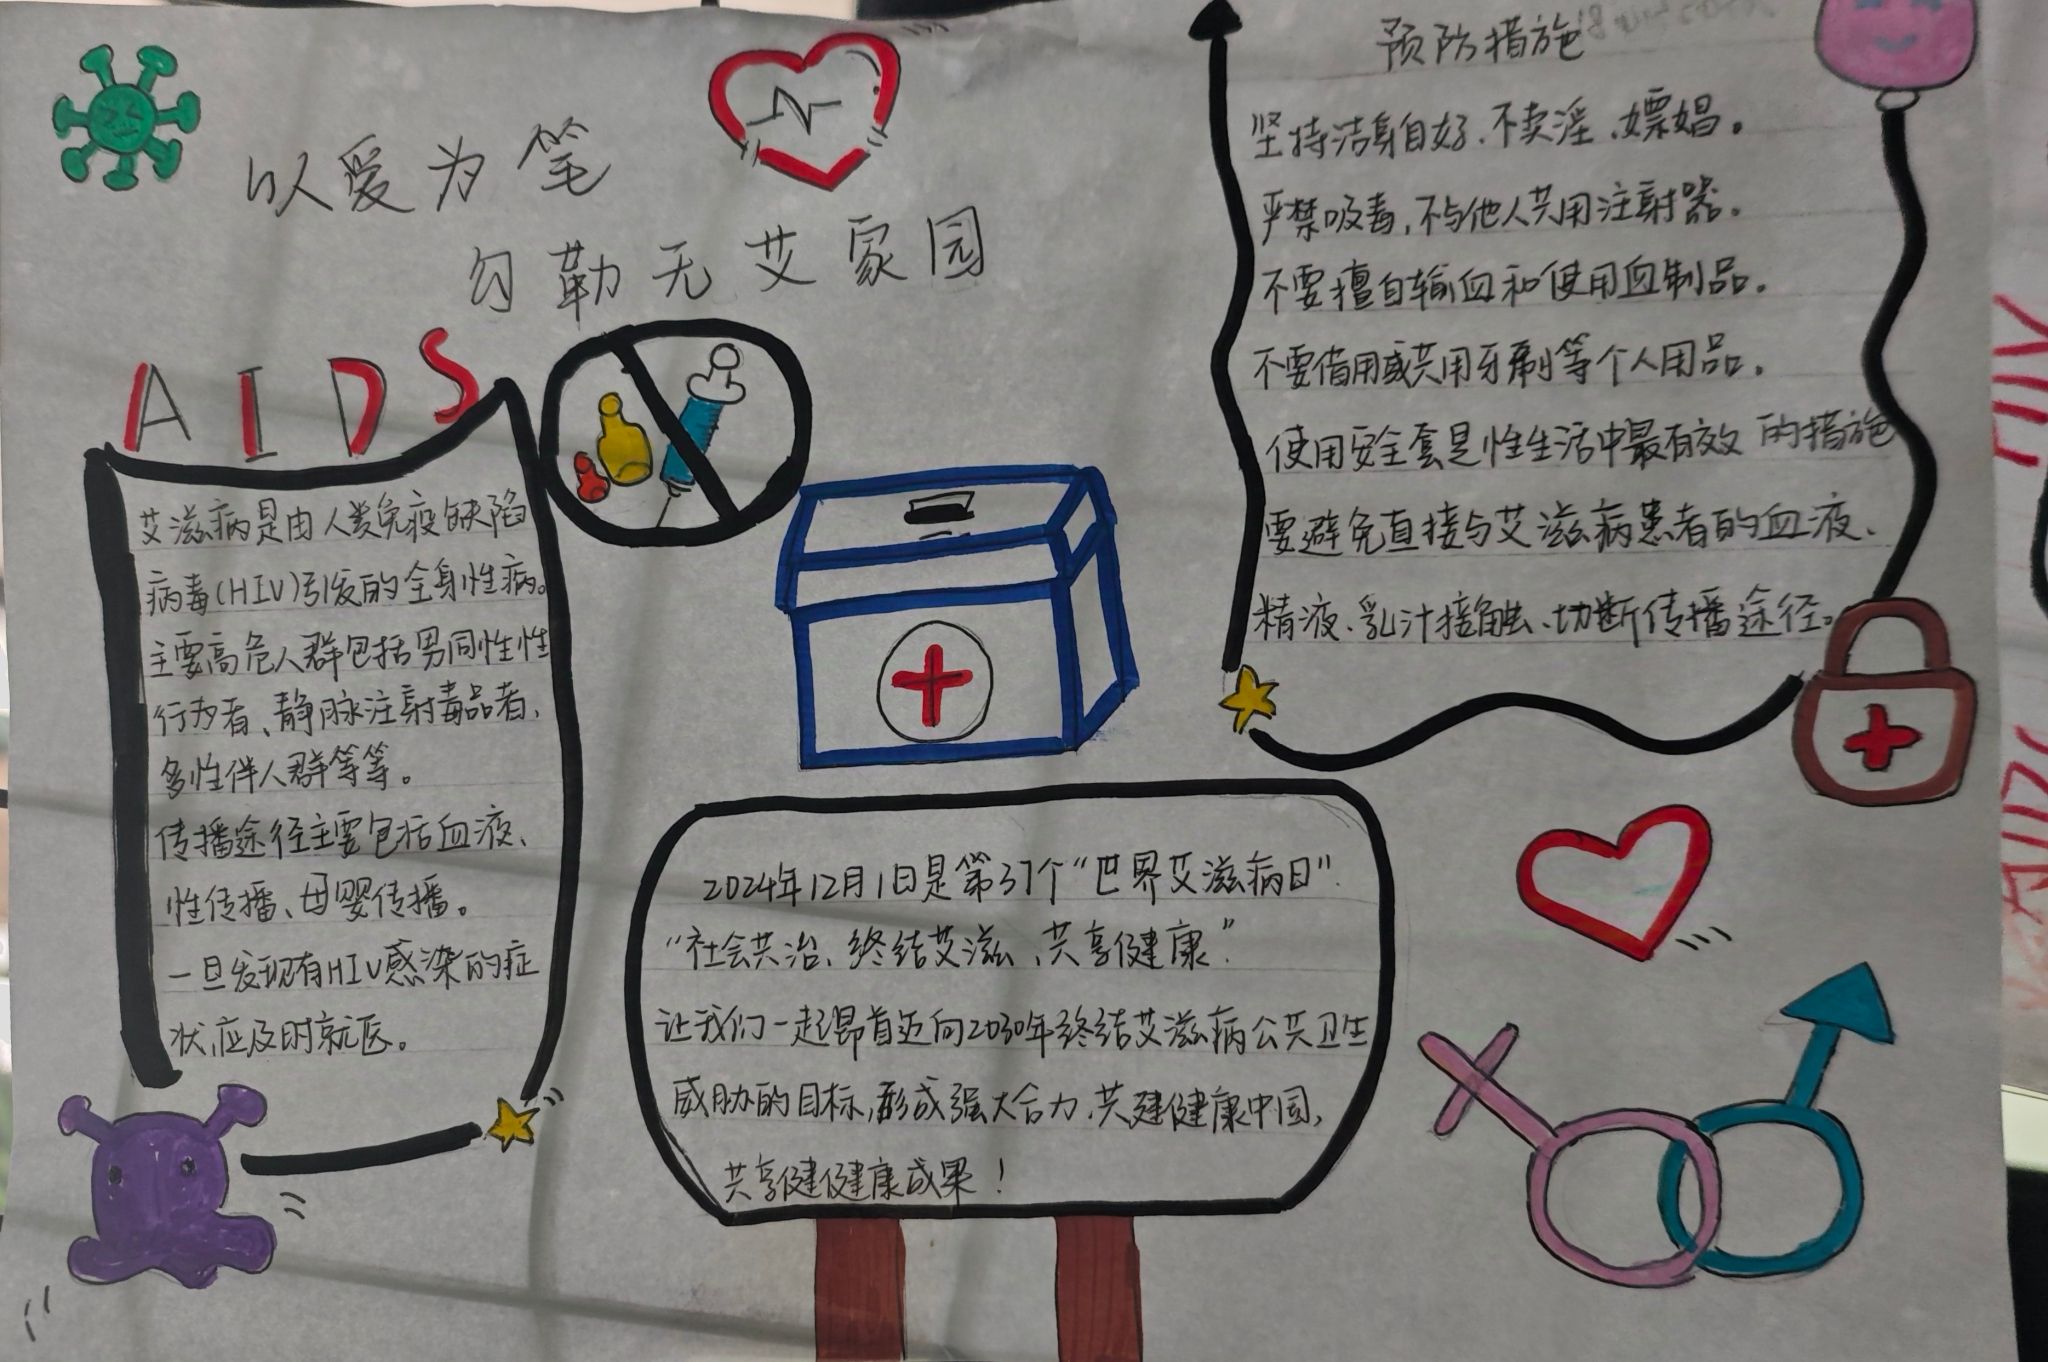 以爱为笔
勾勒无艾家园
AIDS
艾滋病是由人类免疫缺陷
病毒(HIV)引发的全身性病。
主要高危人群包括男同性性
行为者、静脉注射毒品者、
多性伴人群等等。
传播途径主要包括血液、
性传播、母婴传播。
一旦发现有HIV感染的症
状,应及时就医。
预防措施
坚持洁身自好、不卖淫、嫖娼。
严禁吸毒,不与他人共用注射器。
不要擅自输血和使用血制品。
不要借用或共用牙刷等个人用品。
使用安全套是性生活中最有效的措施
要避免直接与艾滋病患者的血液、
精液、乳汁接触、切断传播途径。
2024年12月1日是第37个“世界艾滋病日”.
“社会共治、终结艾滋、共享健康”.
让我们一起昂首迈向2030年终结艾滋病公共卫生
威胁的目标,形成强大合力,共建健康中国,
共享健健康成果!
HIV